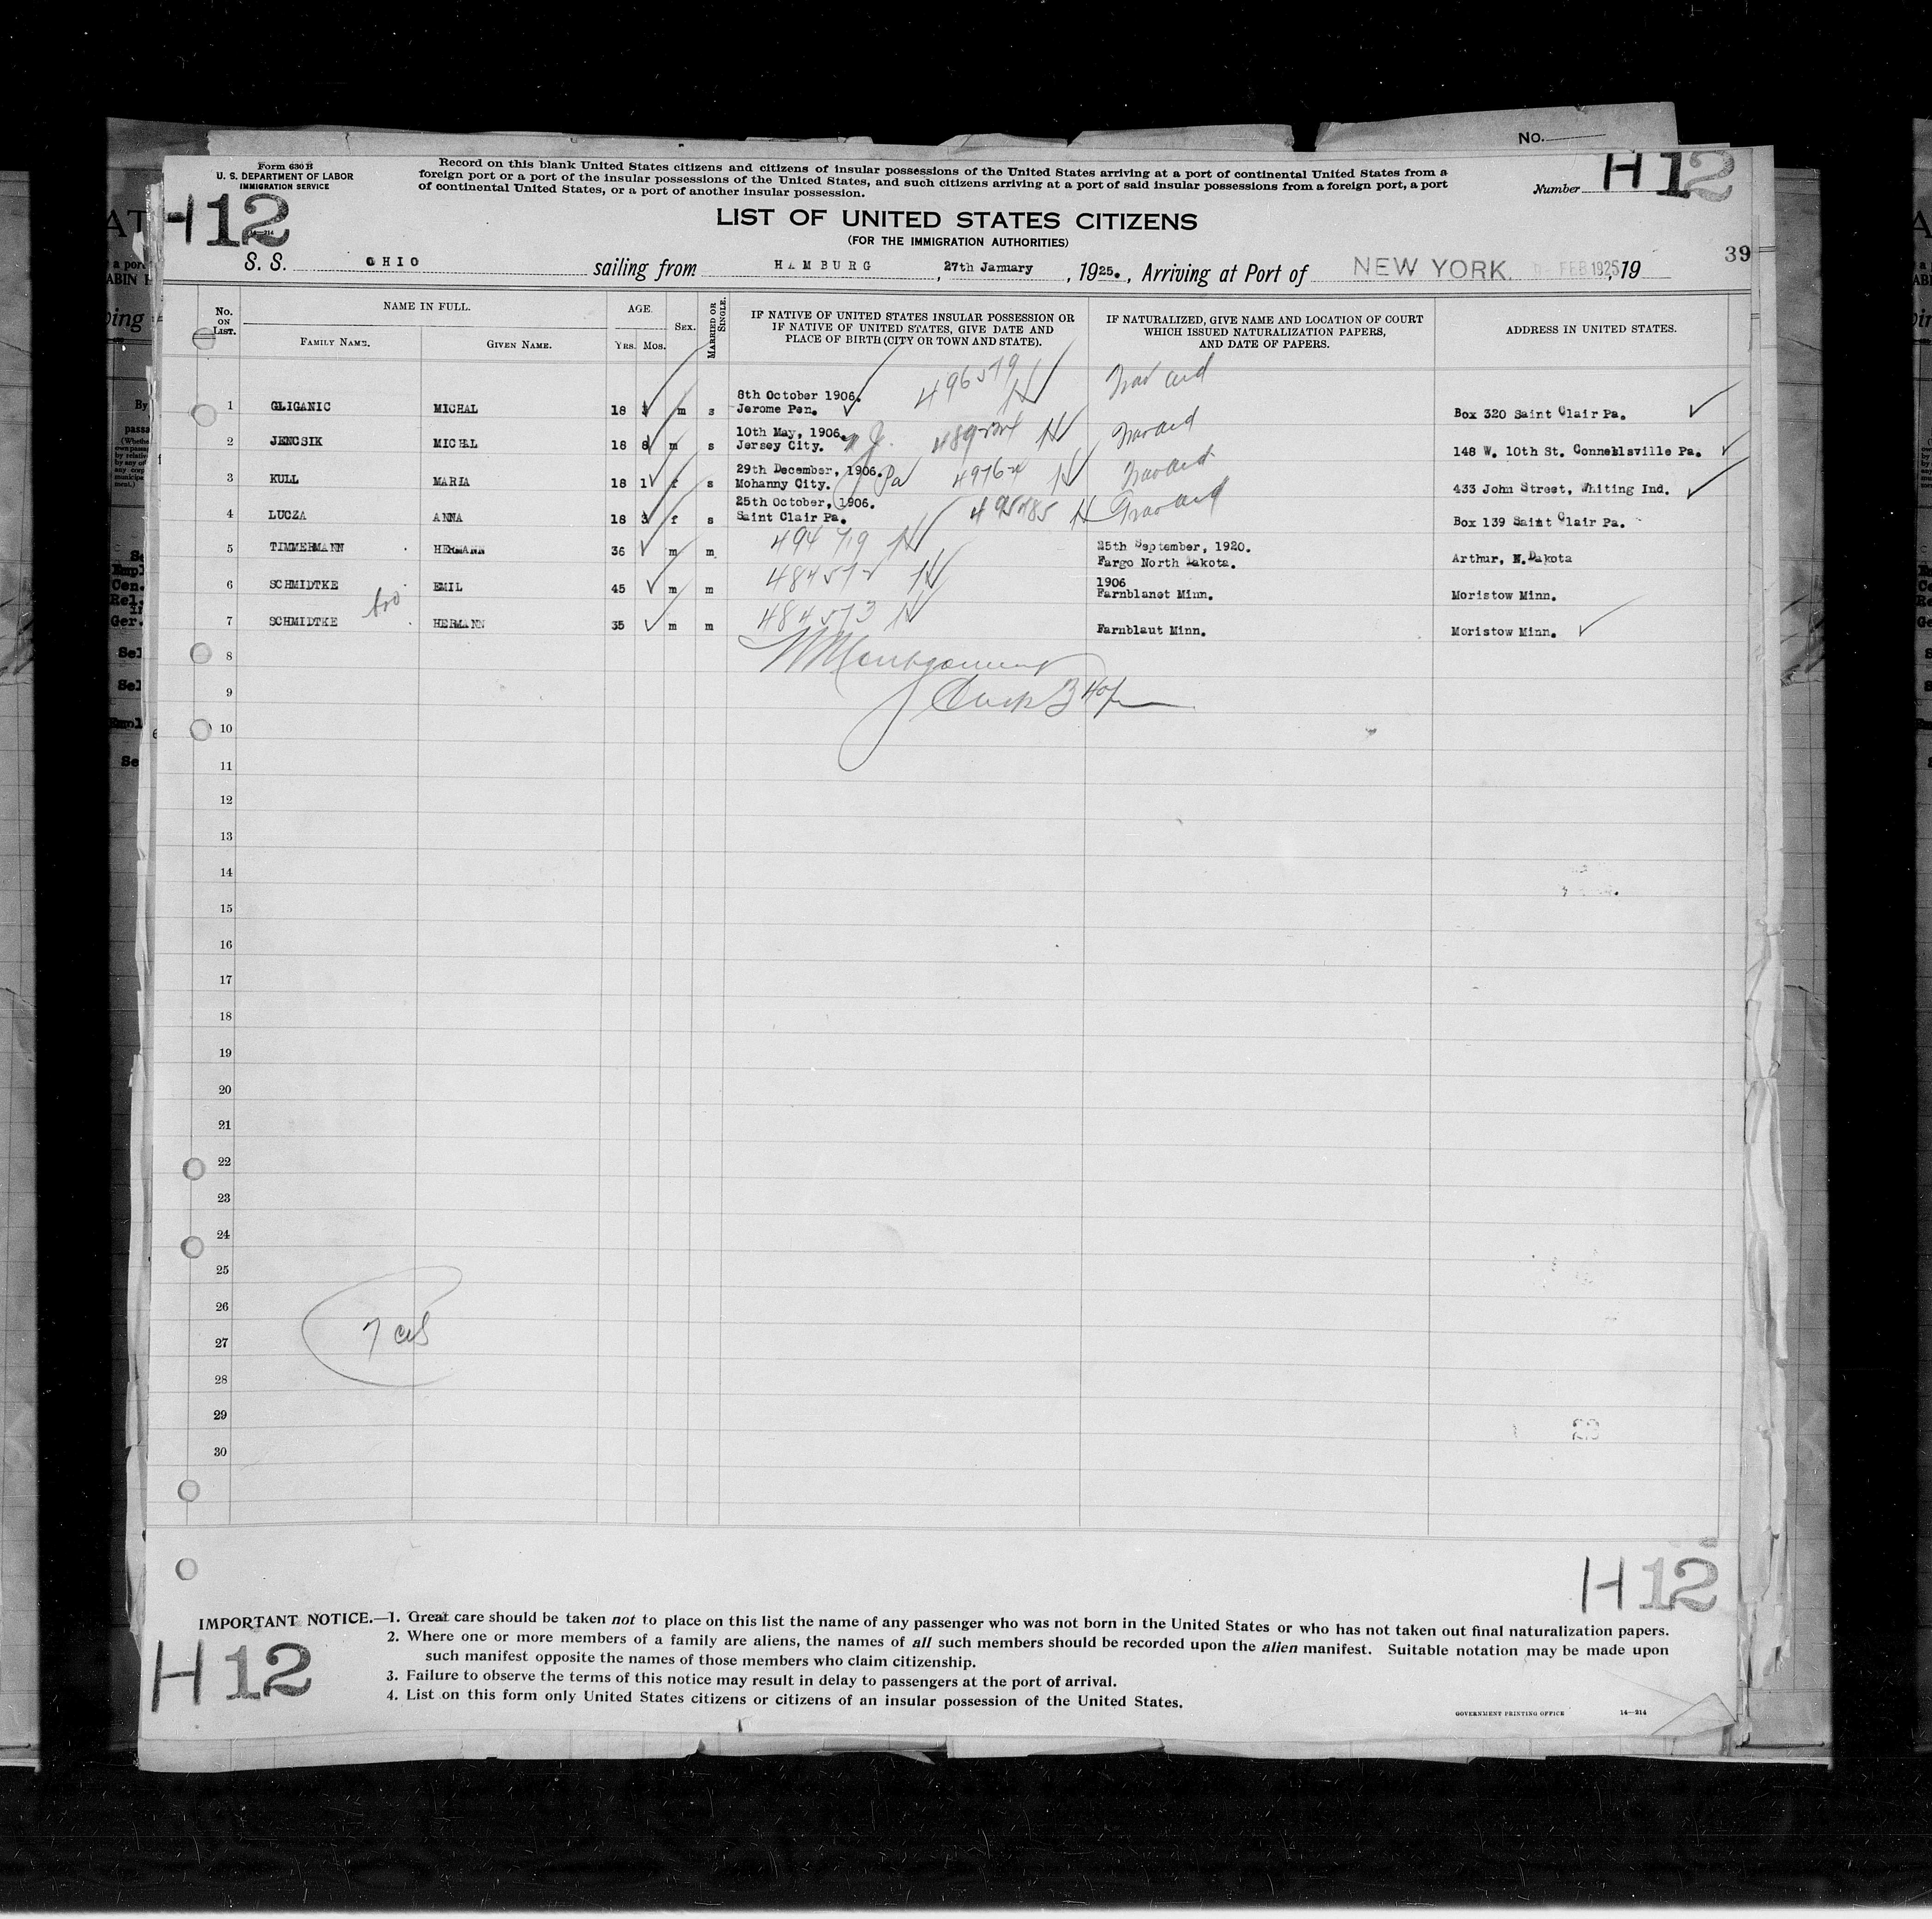 NO.
Form 630 B
U. S. DEPARTMENT OF LABOR
IMMIGRATION SERVICE
Record on this blank United States citizens and citizens of insular possessions of the United States arriving at a port of continental United States from a
foreign port or a port of the insular possessions of the United States, and such citizens arriving at a port of said insular possessions from a foreign port, a port
of continental United States, or a port of another insular possession.
Number H 12
H 12
LIST OF UNITED STATES CITIZENS
(FOR THE IMMIGRATION AUTHORITIES)
39
S. S. OHIO sailing from HAMBURG, 27th January, 1925., Arriving at Port of NEW YORK. FEB 1925, 19
No. ON LIST.
NAME IN FULL.
FAMILY NAME.
GIVEN NAME.
AGE.
YRS. MOS.
SEX.
MARRIED OR SINGLE.
IF NATIVE OF UNITED STATES INSULAR POSSESSION OR
IF NATIVE OF UNITED STATES, GIVE DATE AND
PLACE OF BIRTH (CITY OR TOWN AND STATE).
IF NATURALIZED, GIVE NAME AND LOCATION OF COURT
WHICH ISSUED NATURALIZATION PAPERS,
AND DATE OF PAPERS.
ADDRESS IN UNITED STATES.
8th October 1906. 496579
1 GLIGANIC MICHAL 18 3 m s Jerome Pen. Box 320 Saint Clair Pa.
10th May, 1906.
2 JENCSIK MICHAL 18 8 m s Jersey City. N.J. 148 W. 10th St. Connellsville Pa.
29th December, 1906.
3 KULL MARIA 18 1 f s Mohanny City. Pa 433 John Street, Whiting Ind.
25th October, 1906.
4 LUCZA ANNA 18 3 f s Saint Clair Pa. 495485 Box 139 Saint Clair Pa.
5 TIMMERMANN HERMANN 36 m m 494719 25th September, 1920.
Fargo North Dakota. Arthur, N.Dakota
6 SCHMIDTKE EMIL 45 m m 1906
Farnblanet Minn. Moristow Minn.
7 SCHMIDTKE HERMANN 35 m m 484573 Farnblaut Minn. Moristow Minn.
8
9
10
11
12
13
14
15
16
17
18
19
20
21
22
23
24
25
26
27
28
29
30
H 12
IMPORTANT NOTICE.—1. Great care should be taken not to place on this list the name of any passenger who was not born in the United States or who has not taken out final naturalization papers.
2. Where one or more members of a family are aliens, the names of all such members should be recorded upon the alien manifest. Suitable notation may be made upon
such manifest opposite the names of those members who claim citizenship.
3. Failure to observe the terms of this notice may result in delay to passengers at the port of arrival.
4. List on this form only United States citizens or citizens of an insular possession of the United States.
H 12
GOVERNMENT PRINTING OFFICE 14—214